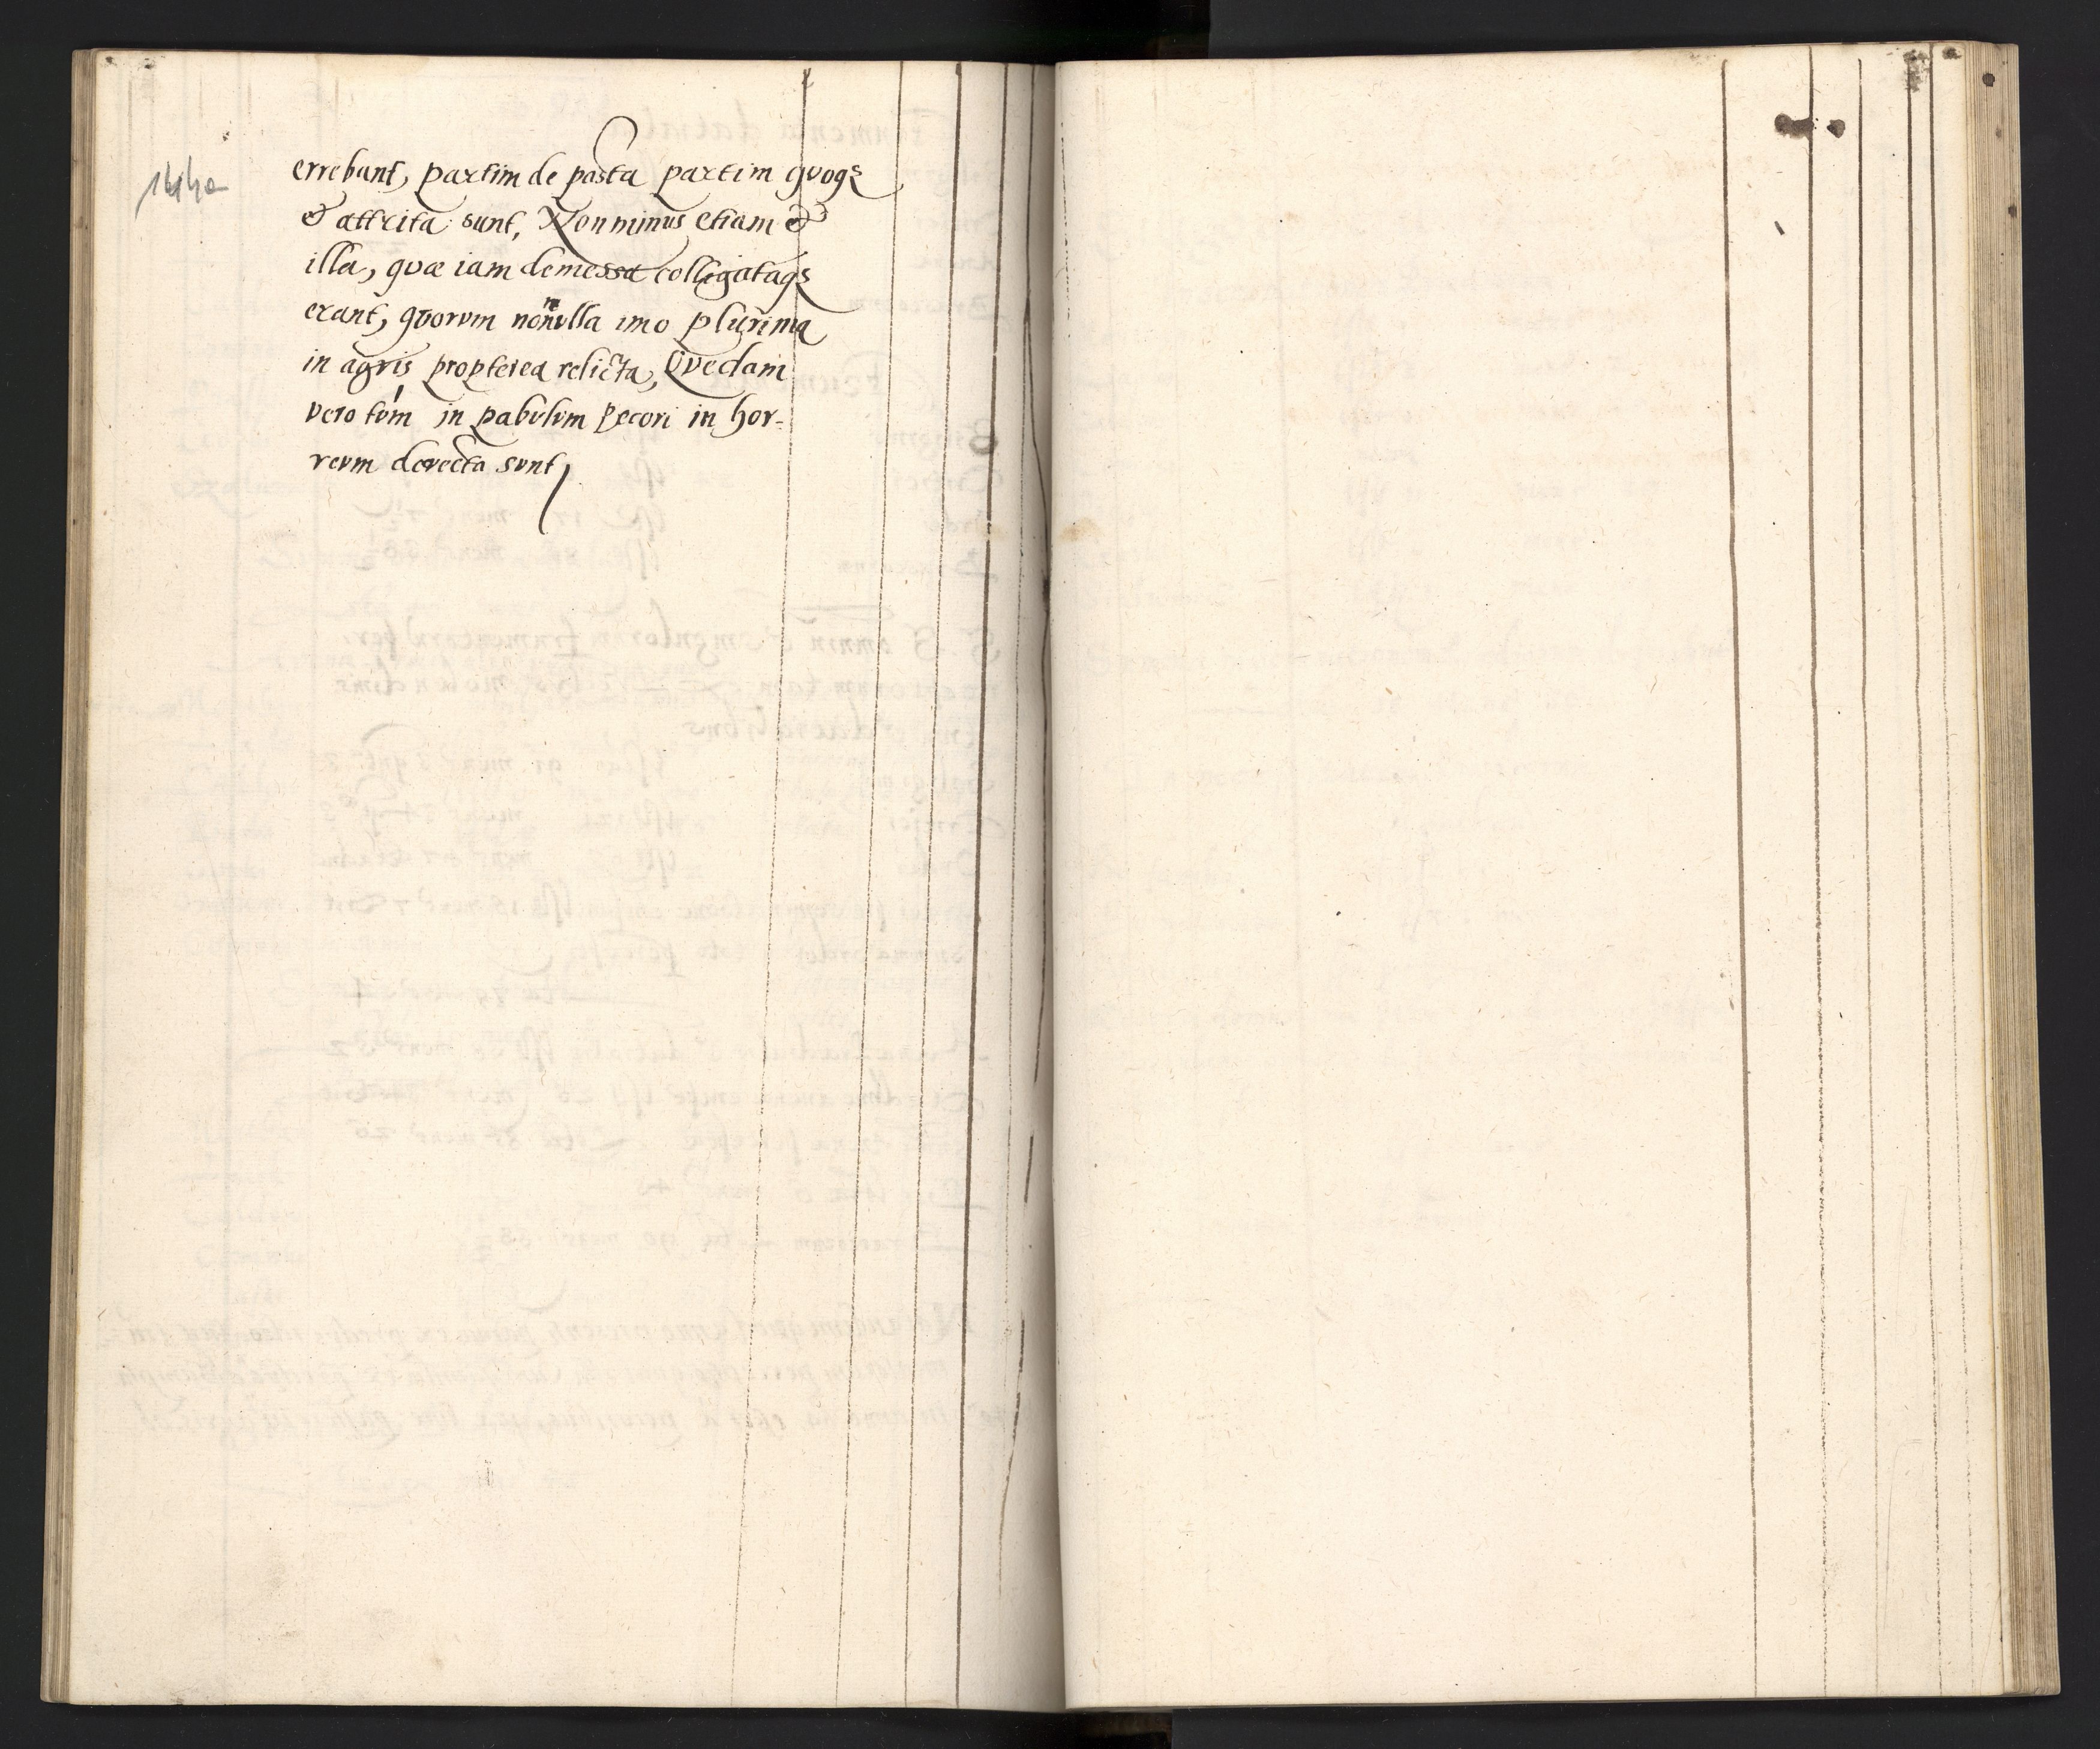 errebant, partim de pasta partim quoqꝫ
& attrita sunt, Non minus etiam &
illa, quæ iam demessa colligataqꝫ
erant, quorvm nonnvlla imo plurima
in agris propterea relicta, Qvedam
vero tvm in pabvlvm pecori in hor-
revm devecta svnt,